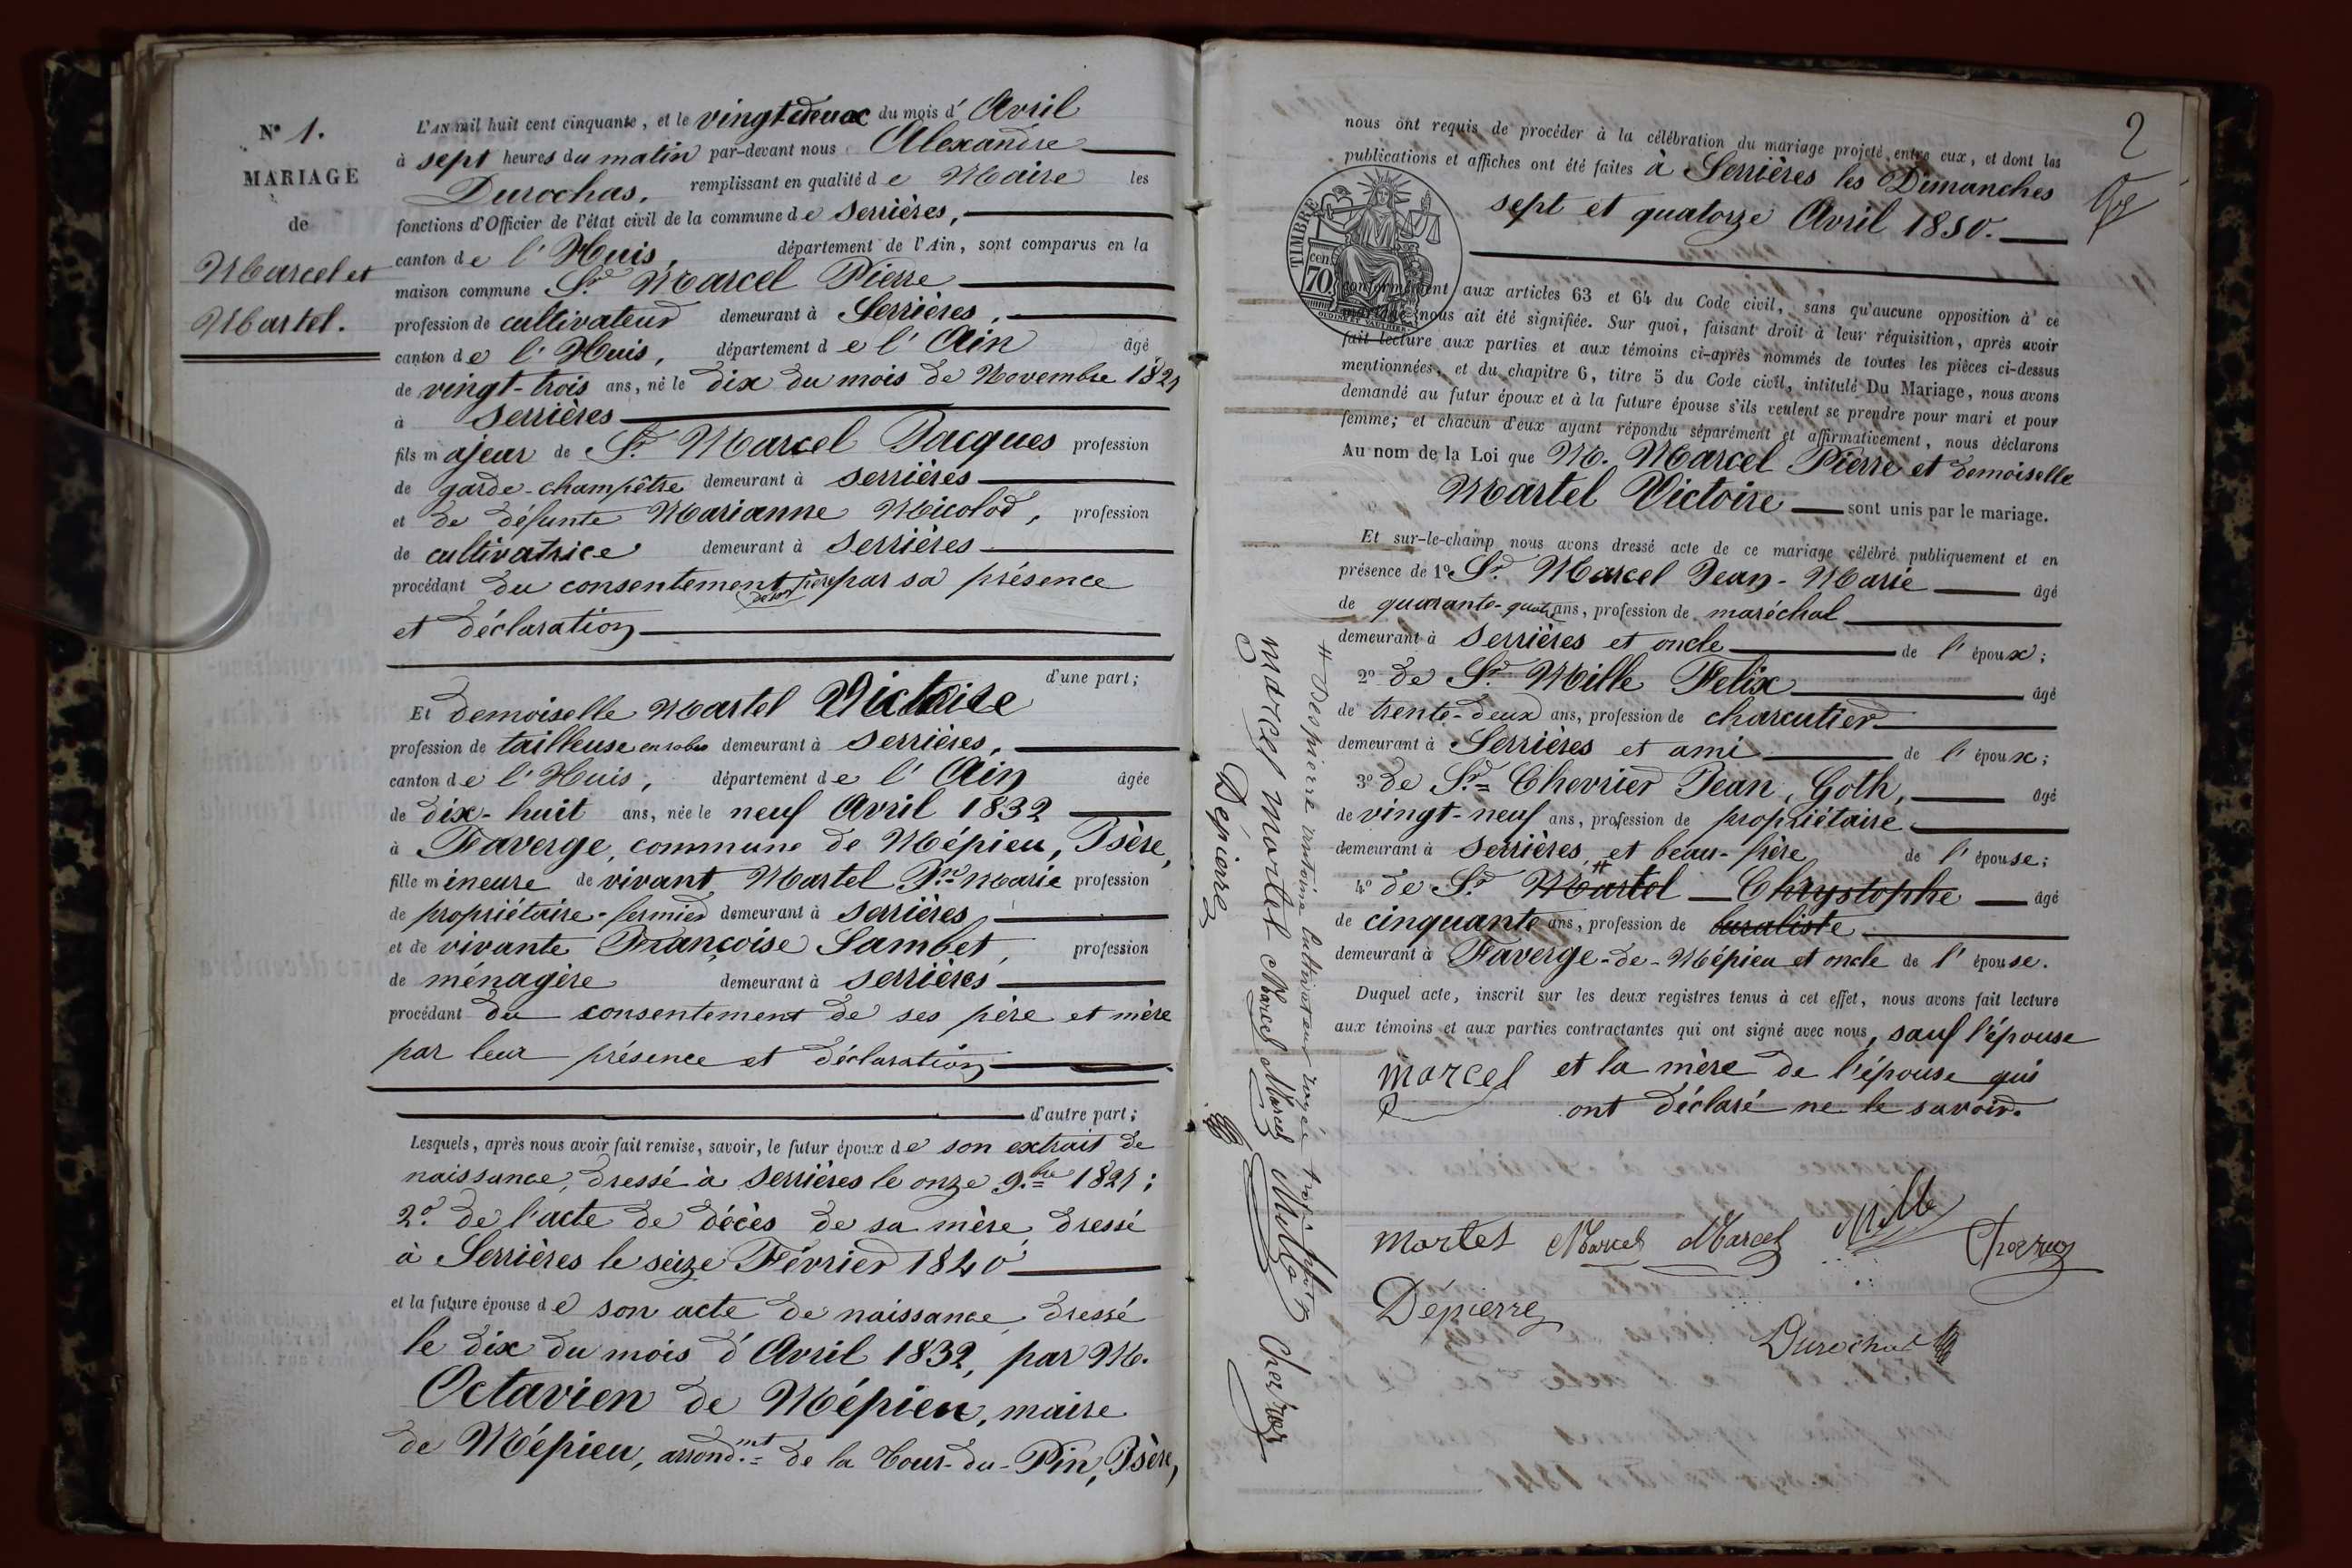 N° 1.
MARIAGE
de
Marcel et
Martel.
L'AN mil huit cent cinquante, et le vingt deux du mois d'Avril
à sept heures du matin par-devant nous Alexandre
Durochas, remplissant en qualité de Maire les
fonctions d'Officier de l'état civil de la commune de Serrières,
canton de l'Huis, département de l'Ain, sont comparus en la
maison commune Sr. Marcel Pierre
profession de cultivateur demeurant à Serrières,
canton de l'Huis, département de l'Ain âgé
de vingt-trois ans, né le dix du mois de Novembre
à Serrières
fils majeur de Sr. Marcel Jacques profession
de garde-champêtre demeurant à Serrières
et de défunte Marianne Micolod, profession
de cultivatrice demeurant à Serrières
procédant du consentement de son père par sa présence
et déclaration
d'une part;
Et demoiselle Martel Victoire
profession de tailleuse en robes demeurant à Serrières,
canton de l'Huis, département de l'Ain âgée
de dix-huit ans, née le neuf Avril 1832
à Faverge, commune de Mépieu, Isère,
fille mineure de vivant Martel Jn. Marie profession
de propriétaire-fermier demeurant à Serrières
et de vivante Françoise Sambet, profession
de ménagère demeurant à Serrières
procédant du consentement de ses père et mère
par leur présence et déclaration
d'autre part;
Lesquels, après nous avoir fait remise, savoir, le futur époux de son extrait de
naissance, dressé à Serrières le onze 9.bre
2.° de l'acte de décès de sa mère, dressé
à Serrières le seize Février 1840
et la future épouse de son acte de naissance, dressé
le dix du mois d'Avril 1832, par M.
Octavien de Mépieu, maire
de Mépieu, arrond.mt de la Tour-du-Pin, Isère,
2
nous ont requis de procéder à la célébration du mariage projeté entre eux, et dont les
publications et affiches ont été faites à Serrières les Dimanches
sept et quatorze Avril 1850.
TIMBRE
70 cen
OLDINE ET VAUTHIER
conformément aux articles 63 et 64 du Code civil, sans qu'aucune opposition à ce
mariage nous ait été signifiée. Sur quoi, faisant droit à leur réquisition, après avoir
fait lecture aux parties et aux témoins ci-après nommés de toutes les pièces ci-dessus
mentionnées, et du chapitre 6, titre 5 du Code civil, intitulé Du Mariage, nous avons
demandé au futur époux et à la future épouse s'ils veulent se prendre pour mari et pour
femme; et chacun d'eux ayant répondu séparément et affirmativement, nous déclarons
Au nom de la Loi que M. Marcel Pierre et demoiselle
Martel Victoire sont unis par le mariage.
Et sur-le-champ nous avons dressé acte de ce mariage célébré publiquement et en
présence de 1° Sr. Marcel Jean-Marie âgé
de quarante-quatre ans, profession de maréchal
demeurant à Serrières et oncle de l'époux;
2° de Sr. Mille Felix âgé
de trente-deux ans, profession de charcutier
demeurant à Serrières et ami de l'époux;
3° de Sr. Chevrier Jean, Goth, âgé
de vingt-neuf ans, profession de propriétaire
demeurant à Serrières, et beau-frère de l'épouse;
4° de Sr. # Martel Chrystophe âgé
de cinquante ans, profession de buraliste
demeurant à Faverge-de-Mépieu et oncle de l'épouse.
Duquel acte, inscrit sur les deux registres tenus à cet effet, nous avons fait lecture
aux témoins et aux parties contractantes qui ont signé avec nous, sauf l'épouse
marcel et la mère de l'épouse qui
ont déclaré ne le savoir.
martel Marcel Marcel Mille
Dépierre
Durochas
# Despierre antoine cultivateur rayée trois mots
marcel martel Marcel Marcel Mille
Dépierre